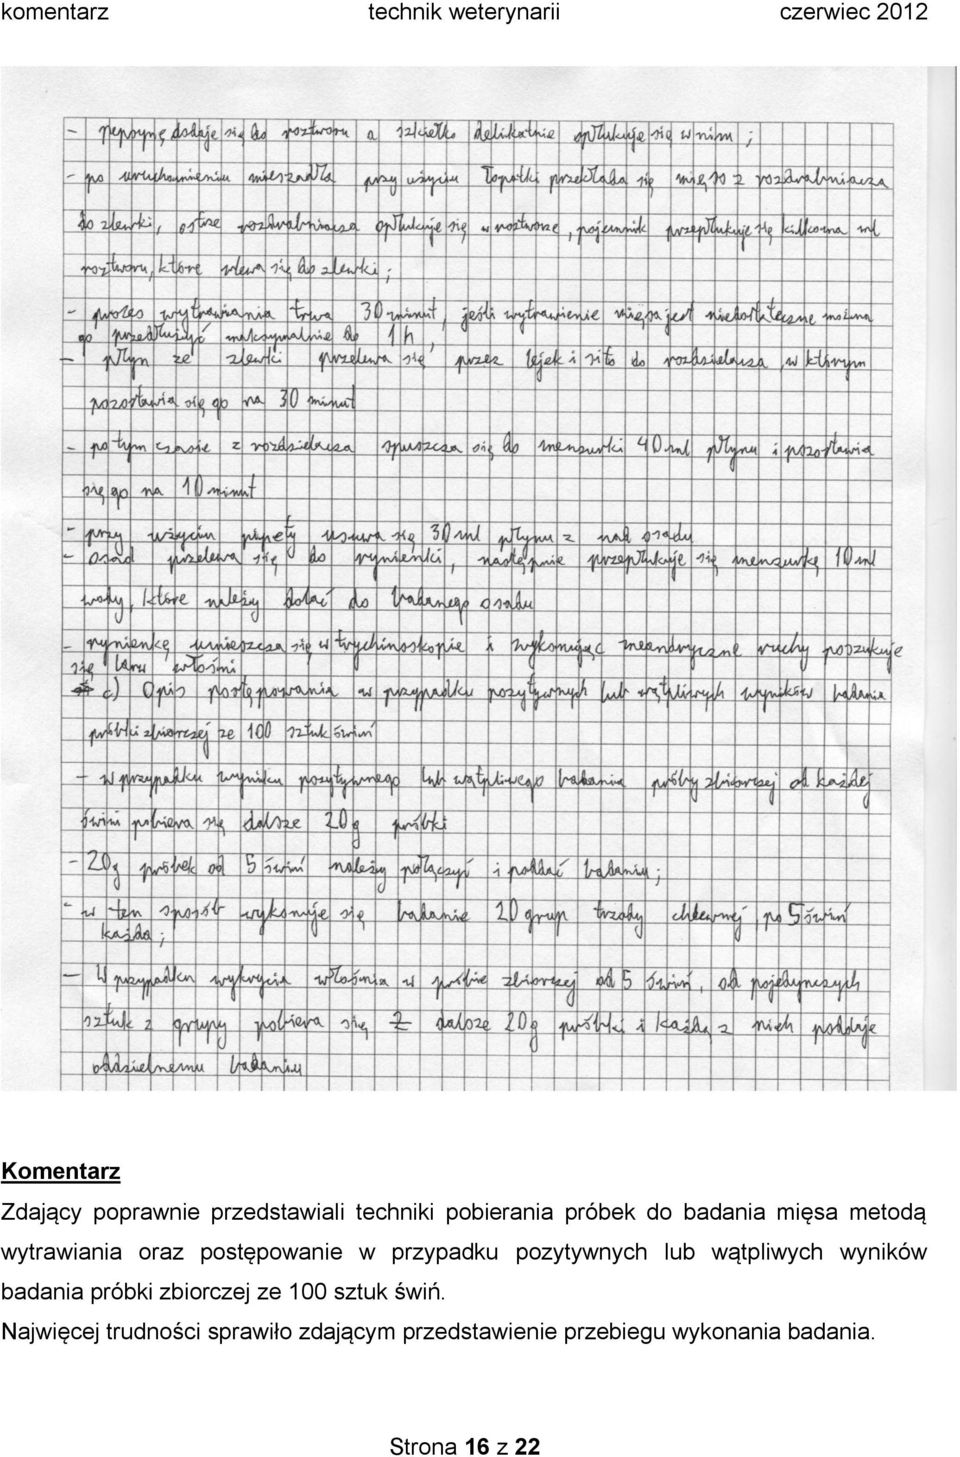 komentarz technik weterynarii czerwiec 2012
- pepsynę dodaje się do roztworu a szkiełko delikatnie opłukuje się w nim ;
- po uruchomieniu mieszadła przy użyciu łopatki przekłada się mięso z rozdrabniacza
do zlewki, ostrze rozdrabniacza opłukuje się w roztworze, pojemnik przepłukuje się kilkoma ml
roztworu, które wlewa się do zlewki ;
- proces wytrawiania trwa 30 minut, jeśli wytrawienie mięsa jest niedostateczne można
go przedłużyć maksymalnie do 1 h ,
- płyn ze zlewki przelewa się przez lejek i sito do rozdzielacza, w którym
pozostawia się go na 30 minut
- po tym czasie z rozdzielacza spuszcza się do menzurki 40 ml płynu i pozostawia
się go na 10 minut
- przy użyciu pipety usuwa się 30 ml płynu z nad osadu
- osad przelewa się do rynienki, następnie przepłukuje się menzurkę 10 ml
wody, które należy dolać do badanego osadu
- rynienkę umieszcza się w trychinoskopie i wykonując meandryczne ruchy poszukuje
się larw włośni
c) Opis postępowania w przypadku pozytywnych lub wątpliwych wyników badania
próbki zbiorczej ze 100 sztuk świń
- w przypadku wyniku pozytywnego lub wątpliwego badania próby zbiorczej od każdej
świni pobiera się dalsze 20g próbki
- 20g próbek od 5 świń należy połączyć i poddać badaniu ;
- w ten sposób wykonuje się badanie 20 grup trzody chlewnej, po 5 świń
każda ;
- W przypadku wykrycia włośnia w próbie zbiorczej od 5 świń, od pojedynczych
sztuk z grupy pobiera się dalsze 20g próbki i każdą z nich poddaje
oddzielnemu badaniu
Komentarz
Zdający poprawnie przedstawiali techniki pobierania próbek do badania mięsa metodą
wytrawiania oraz postępowanie w przypadku pozytywnych lub wątpliwych wyników
badania próbki zbiorczej ze 100 sztuk świń.
Najwięcej trudności sprawiło zdającym przedstawienie przebiegu wykonania badania.
Strona 16 z 22